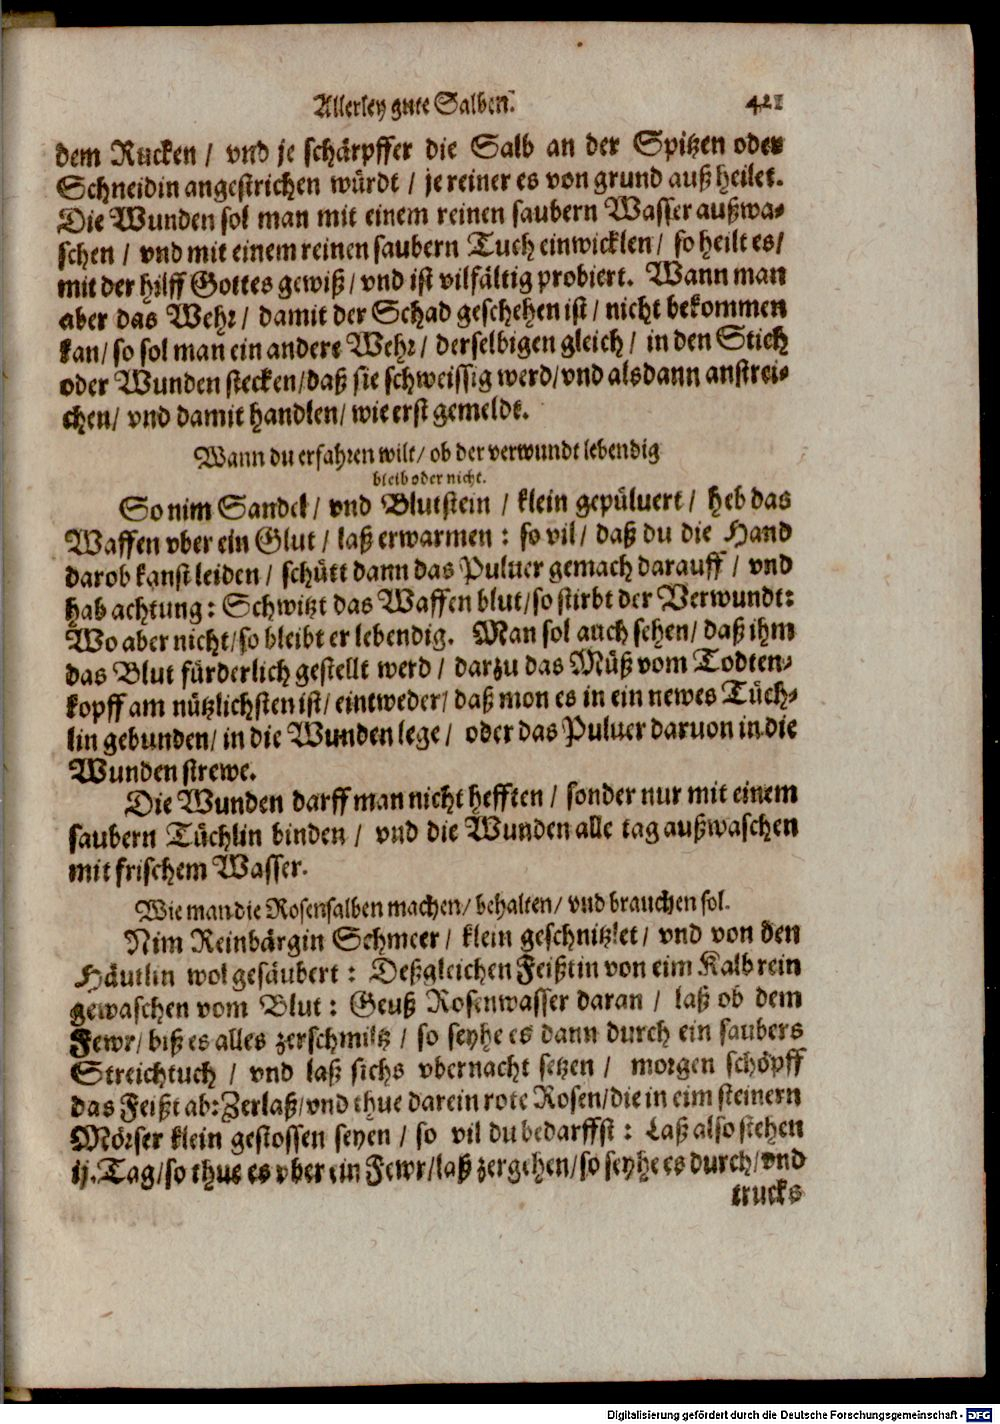 Allerley gute Salben. 421
dem Rucken / vnd je schärpffer die Salb an der Spitzen oder
Schneidin angestrichen würdt / je reiner es von grund auß heilet.
Die Wunden sol man mit einem reinen saubern Wasser außwa-
schen / vnd mit einem reinen saubern Tuch einwicklen / so heilt es /
mit der hilff Gottes gewiß / vnd ist vilfältig probiert. Wann man
aber das Wehr / damit der Schad geschehen ist / nicht bekommen
kan / so sol man ein andere Wehr / derselbigen gleich / in den Stich
oder Wunden stecken / daß sie schweissig werd / vnd alsdann anstrei-
chen / vnd damit handlen / wie erst gemeldt.
Wann du erfahren wilt / ob der verwundt lebendig
bleib oder nicht.
So nim Sandel / vnd Blutstein / klein gepüluert / heb das
Waffen vber ein Glut / laß erwarmen : so vil / daß du die Hand
darob kanst leiden / schütt dann das Puluer gemach darauff / vnd
hab achtung : Schwitzt das Waffen blut / so stirbt der Verwundt :
Wo aber nicht / so bleibt er lebendig. Man sol auch sehen / daß ihm
das Blut fürderlich gestellt werd / darzu das Müß vom Todten-
kopff am nützlichsten ist / eintweder / daß mon es in ein newes Tüch-
lin gebunden / in die Wunden lege / oder das Puluer daruon in die
Wunden strewe.
Die Wunden darff man nicht hefften / sonder nur mit einem
saubern Tüchlin binden / vnd die Wunden alle tag außwaschen
mit frischem Wasser.
Wie man die Rosensalben machen / behalten / vnd brauchen sol.
Nim Reinbärgin Schmeer / klein geschnitzlet / vnd von den
Häutlin wol gesäubert : Deßgleichen Feißtin von eim Kalb rein
gewaschen vom Blut : Geuß Rosenwasser daran / laß ob dem
Fewr / biß es alles zerschmiltz / so seyhe es dann durch ein saubers
Streichtuch / vnd laß sichs vbernacht setzen / morgen schöpff
das Feißt ab : Zerlaß / vnd thue darein rote Rosen / die in eim steinern
Mörser klein gestossen seyen / so vil du bedarffst : Laß also stehen
ij. Tag / so thue es vber ein Fewr / laß zergehen / so seyhe es durch / vnd
trucks
Digitalisierung gefördert durch die Deutsche Forschungsgemeinschaft - DFG